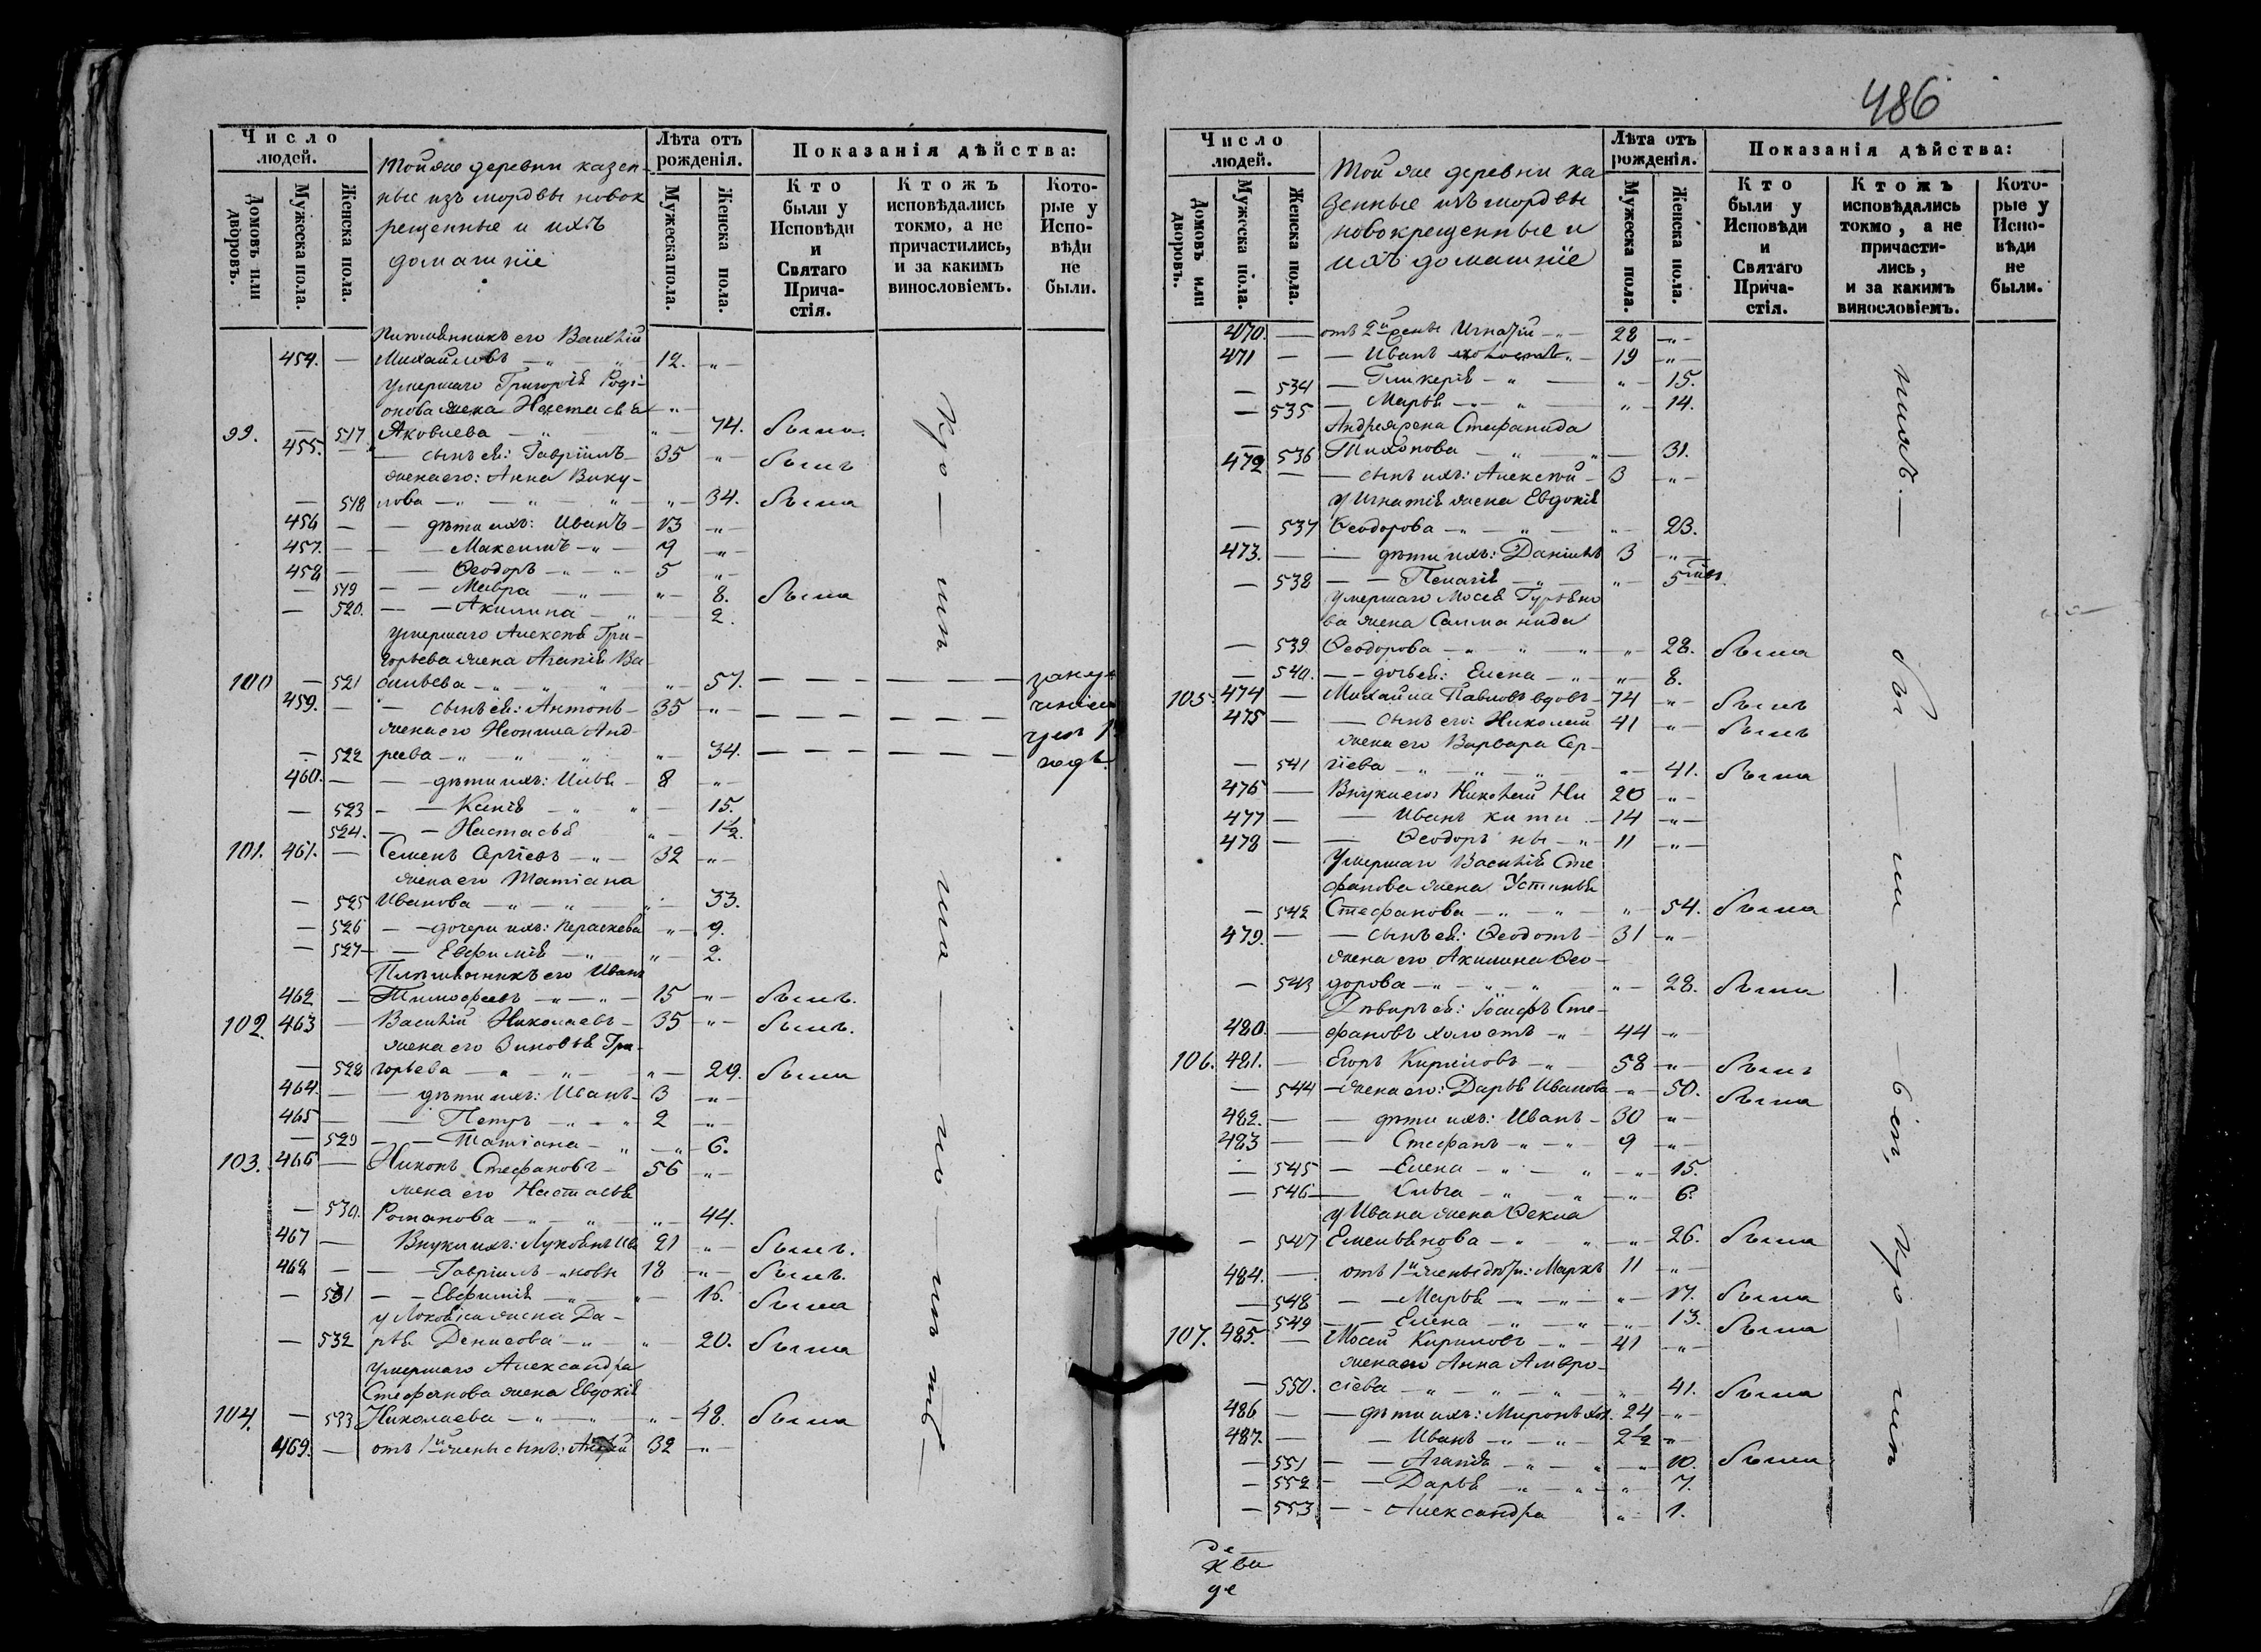 486
Число людей.
Домовъ или дворовъ.
Мужеска пола.
Женска пола.
Той же деревни казен-
ные изъ мордвы новок
рещенные и ихъ
домашніе
Лѣта отъ рожденія.
Мужеска пола.
Женска пола.
Показанія дѣйства:
Кто были у Исповѣди и Святаго Причастія.
Ктожъ исповѣдались токмо, а не причастились, и за какимъ винословіемъ.
Которые у Исповѣди не были.
Племянникъ его Василій
454. — Михайловъ — „ — „ 12. — „ —
умершаго Григорія Роді-
онова жена Настасья
99. — 517 Яковлева — „ — 74. была.
455. — сынъ ея: Гавріилъ — 35 — „ — былъ
жена его: Анна Вику-
— 518 лова — „ — „ — „ — 34. была
456 — дѣти ихъ: Иванъ — 13 — „ —
457. — — Максимъ — „ — 9 — „ —
458 — — Ѳеодоръ — „ — 5 — „ —
— 519 — — Мавра — „ — „ — 8. была
— 520. — — Акилина — „ — 2.
умершаго Алексѣя Гри-
горьева жена Агапія Ва-
100 — 521 сильева — „ — „ — 57. — — — —
459. — сынъ ея: Антонъ — 35 — „ — — — — —
жена его Неонила Анд-
— 522 реева — „ — „ — 34. — — — —
460. — дѣти ихъ: Илья — 8 — „ —
— 523 — — Ксенія — „ — 15.
524. — — Настасья „ — 1½.
101. 461. — Семенъ Сергіевъ — „ — 32 — „ —
жена его Татіана
— 525 Иванова — „ — „ — „ — 33.
— 526 — дочери ихъ: Параскева — „ — 9.
— 527 — — Евфимія — „ — „ — 2.
Племянникъ его Иванъ
462 — Тимофеевъ — „ — „ — 15 — „ — былъ.
102. 463 — Василій Николаевъ — 35 — „ — былъ.
жена его Зиновья Гри-
— 528 горьева — „ — „ — „ — 29. была
464. — дѣти ихъ: Иванъ — 3 — „ —
465 — — Петръ — „ — „ 2 — „ —
— 529 — — Татіана — „ — „ — 6.
103. 466 — Никонъ Стефановъ — 56 — „ —
жена его Настасья
— 530. Романова — „ — „ — „ — 44.
467 — Внуки ихъ: 21 — „ — былъ.
468 — — Гавріилъ — 18 — „ — былъ.
— 531 — — Евфимія — „ — 16. была
жена Да-
— 532 рья Денисова — „ — „ — 20. была
умершаго Александра
Стефанова жена Евдокія
104. — 533 Николаева — „ — „ — 48. была
469. — отъ 1й жены сынъ: Андрей 32 — „ —
Число людей.
Домовъ или дворовъ.
Мужеска пола.
Женска пола.
Той же деревни ка
зенные изъ мордвы
новокрещенные и
ихъ домашніе
Лѣта отъ рожденія.
Мужеска пола.
Женска пола.
Показанія дѣйства:
Кто были у Исповѣди и Святаго Причастія.
Ктожъ исповѣдались токмо, а не причастились, и за какимъ винословіемъ.
Которые у Исповѣди не были.
470. — отъ 2й жены Игнатій — „ — 28 — „ —
471 — — Иванъ — „ — 19 — „ —
— 534 — Гликерія — „ — „ — 15.
— 535 — Марья — „ — „ — 14.
Андрея жена Стефанида
— 536 Тихонова — „ — „ — 31.
472 — сынъ ихъ: Алексѣй — 3 — „ —
у Игнатія жена Евдокія
— 537 Ѳеодорова — „ — „ — „ — 23.
473. — дѣти ихъ: Даніилъ 3 — „ —
— 538 — — Пелагія — „ — „ — 5
умершаго Мосея
жена
— 539. Ѳеодорова — „ — „ — „ — 28. была
— 540. — дочь ея: Елена — „ — „ — 8.
105. 474 — Михайла Павловъ вдовъ — 74 — „ — былъ
475 — сынъ его: Николай 41 — „ — былъ
жена его Варвара Сер-
— 541 гіева — „ — „ — „ — 41. была
476 — Внуки его: Николай Ни 20 — „ —
477 — — Иванъ ки ти — 14 — „ —
478 — — Ѳеодоръ ны — „ 11 — „ —
умершаго Василія Сте
фанова жена Устинья
— 542 Стефанова — „ — „ — „ — 54. была
479. — сынъ ея: Ѳеодотъ — 31 — „ —
жена его Акилина Ѳео-
— 543 дорова — „ — „ — „ — 28. была
Дѣверь ея: Іосифъ Сте-
480. — фановъ холостъ — „ — 44 — „ —
106. 481. — Егоръ Кириловъ — „ — 58 — „ — былъ
— 544 — жена его: Дарья Иванова — „ — 50. была
482. — дѣти ихъ: Иванъ — 30 — „ —
483 — — Стефанъ — „ — „ 9 — „ —
— 545 — — Елена — „ — „ — 15.
— 546 — „ — „ — „ — 6.
у Ивана жена Ѳекла
— 547 Емельянова — „ — „ — 26. была
484. — отъ 1й жены дѣти: Маркъ 11 — „ —
— 548 — — Марья — „ — „ — 17. была
— 549 — — Елена — „ — „ — 13. была
107. 485. — Мосей Кириловъ — „ — 41 — „ —
жена его Анна Амвро-
— 550. сіева — „ — „ — „ — 41. была
486 — дѣти ихъ: Миронъ хол. 24 — „ —
487. — — Иванъ — „ — „ 2½ — „ —
— 551 — — Агапія — „ — „ — 10. была
— 552 — — Дарья — „ — „ — 7.
— 553 — — Александра „ — 1.